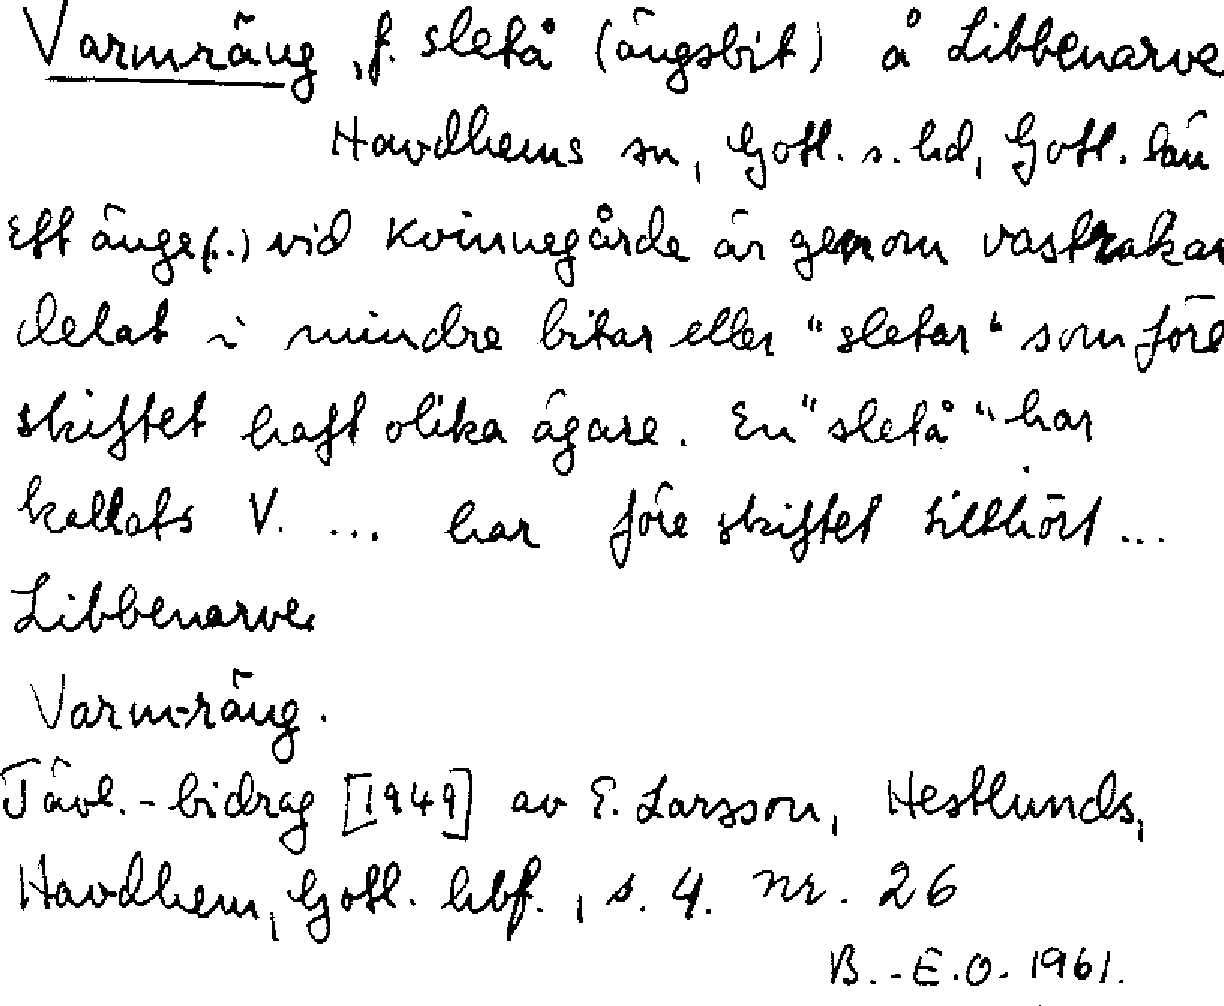 Varmräng, f. sletå (ängsbit) å Libbenarve
Havdhems sn, Gotl. s. hd, Gotl. län
Ett änge (..) vid Kvinnegårde är genom vastrakar
delat i mindre bitar eller "sletar" som före
skiftet haft olika ägare. En "sletå" har
kallats V. ... har före skiftet tillhört ...
Libbenarve.
Varm-räng.
Tävl.-bidrag [1949] av E. Larsson, Hestlunds,
Havdhem, Gotl. hbf., s. 4. nr. 26
B.-E.O. 1961.